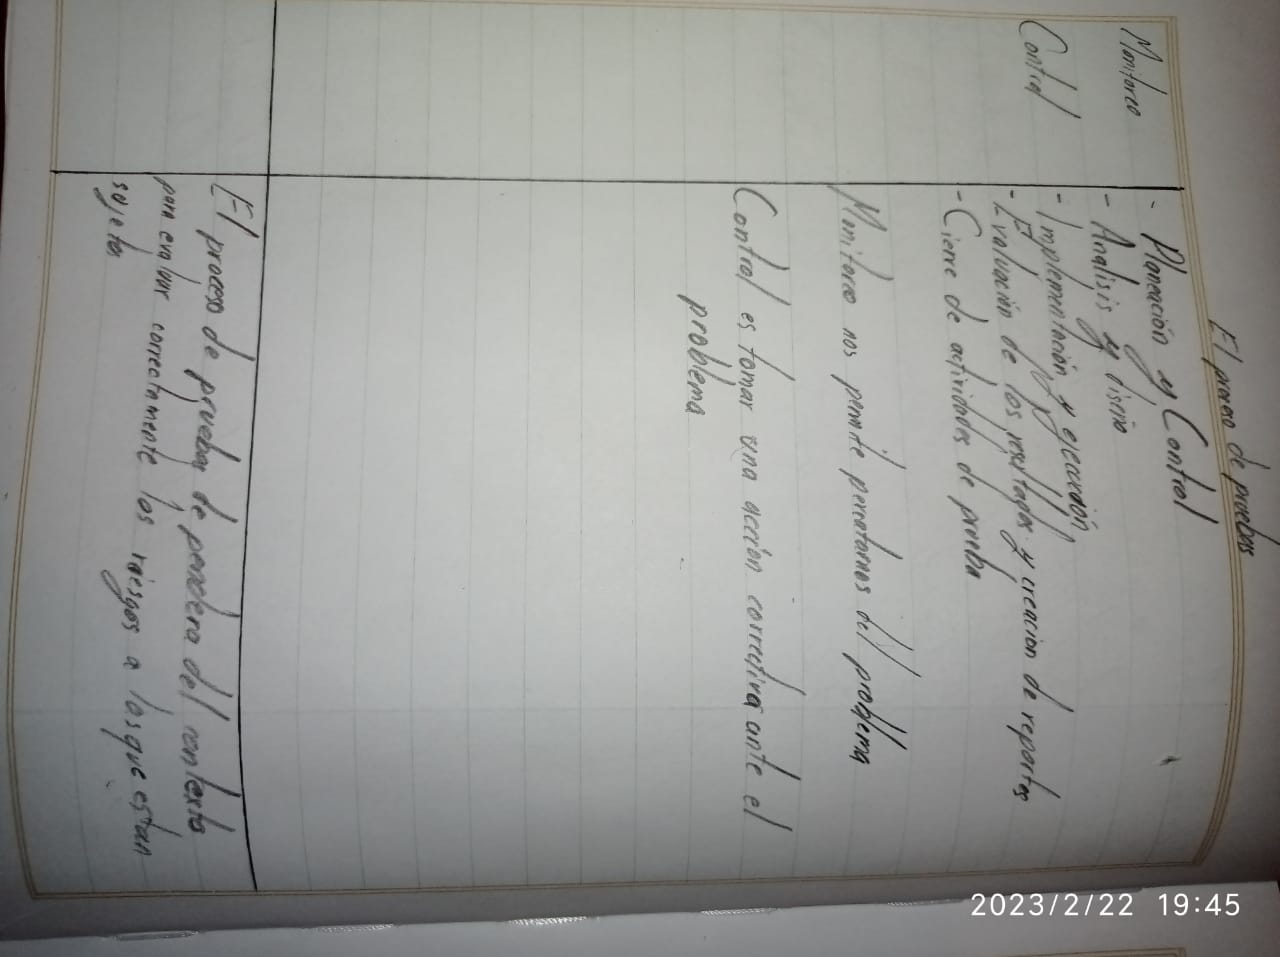 El proceso de pruebas
Monitoreo
Control
- Planeación y Control
- Analisis y diseño
- Implementación y ejecución
- Evaluación de los resultados y creacion de reportes
- Cierre de actividades de prueba
Monitoreo nos permite percatarnos del problema
Control es tomar una acción correctiva ante el
problema
El proceso de pruebas de pendera del contexto
para evaluar correctamente los riesgos a los que estan
sujetos
2023/2/22 19:45